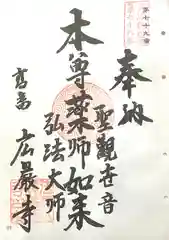 第七十九番
奉納
聖観世音
本尊薬師如来
弘法大師
高嶋
広巖寺